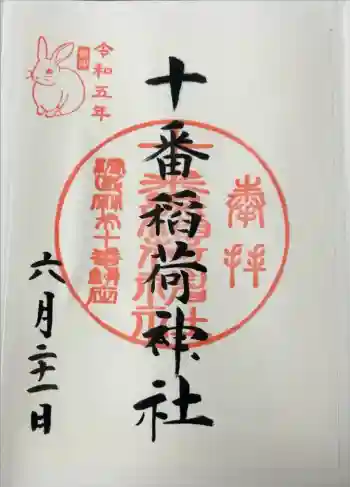 奉拝
十番稲荷神社
令和五年
六月二十一日